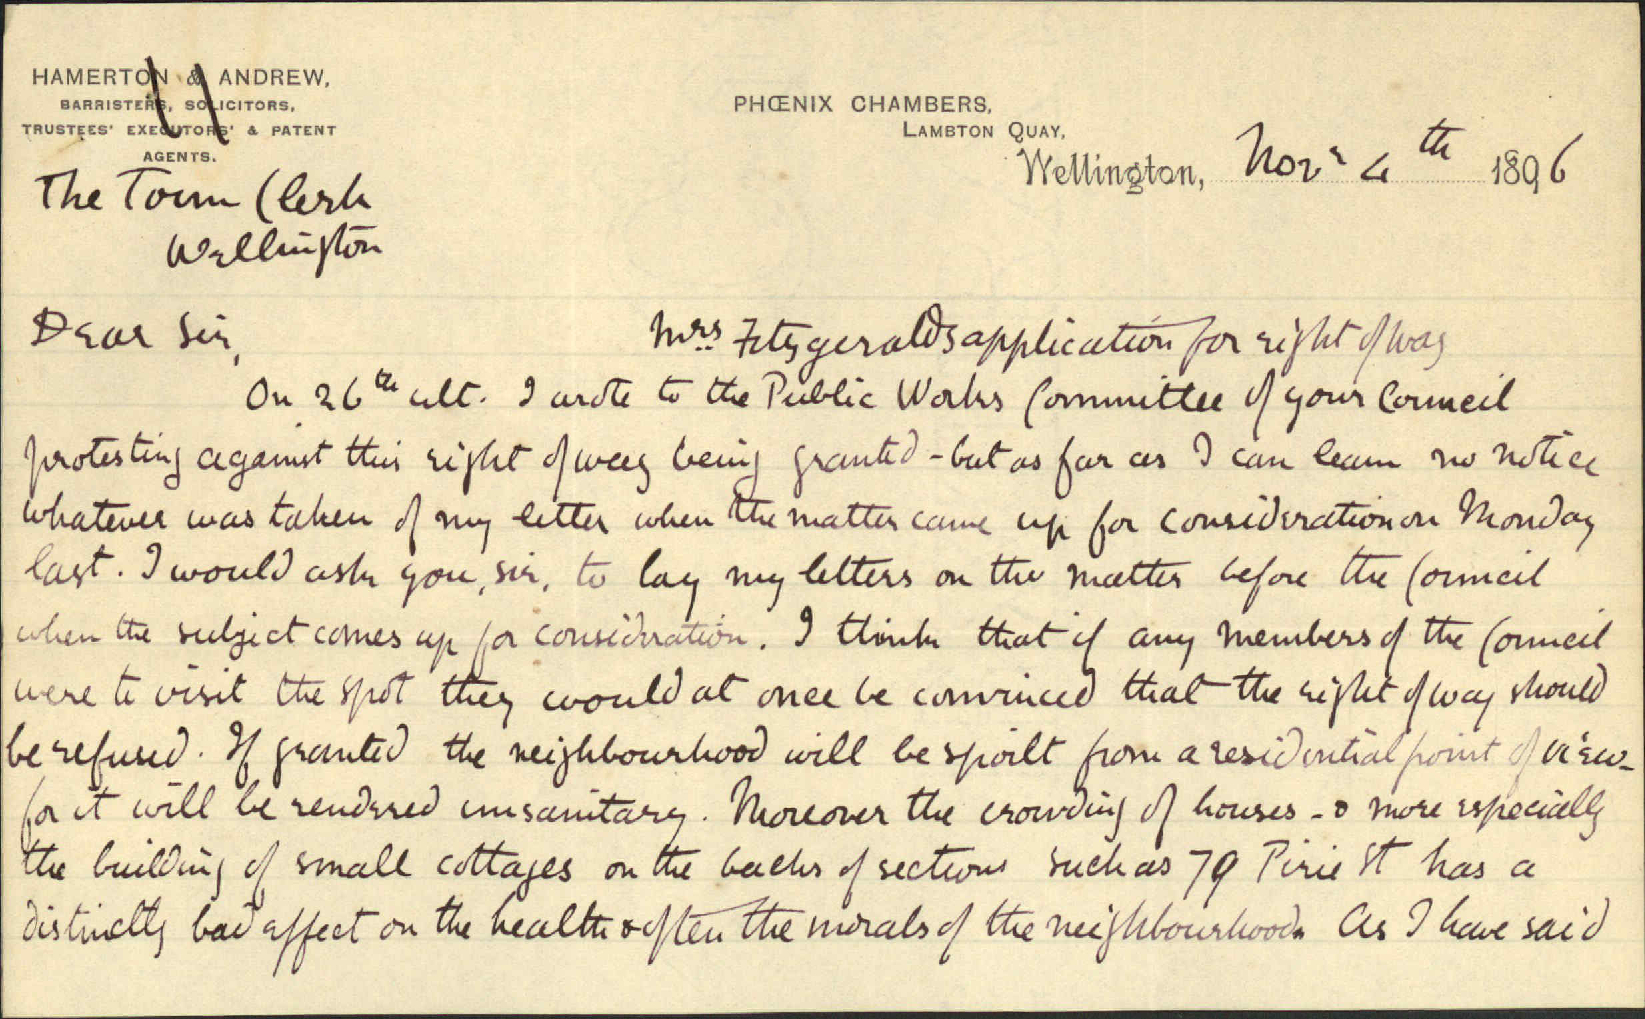 HAMERTON & ANDREW,
BARRISTERS, SOLICITORS,
TRUSTEES' EXECUTORS' & PATENT
AGENTS.
PHŒNIX CHAMBERS,
LAMBTON QUAY,
Wellington, Novr 4th 1896
The Town Clerk
Wellington
Dear Sir,
Mrs Fitzgeralds application for right of way
On 26th ult. I wrote to the Public Works Committee of your Council
protesting against this right of way being granted - but as far as I can learn no notice
whatever was taken of my letter when the matter came up for consideration on Monday
last. I would ask you, sir, to lay my letters on the matter before the Council
when the subject comes up for consideration. I think that if any members of the Council
were to visit the spot they would at once be convinced that the right of way should
be refused. If granted the neighbourhood will be spoilt from a residential point of view -
for it will be rendered unsanitary. Moreover the crowding of houses - & more especially
the building of small cottages on the backs of sections such as 79 Pirie St has a
distinctly bad affect on the health & often the morals of the neighbourhood. As I have said